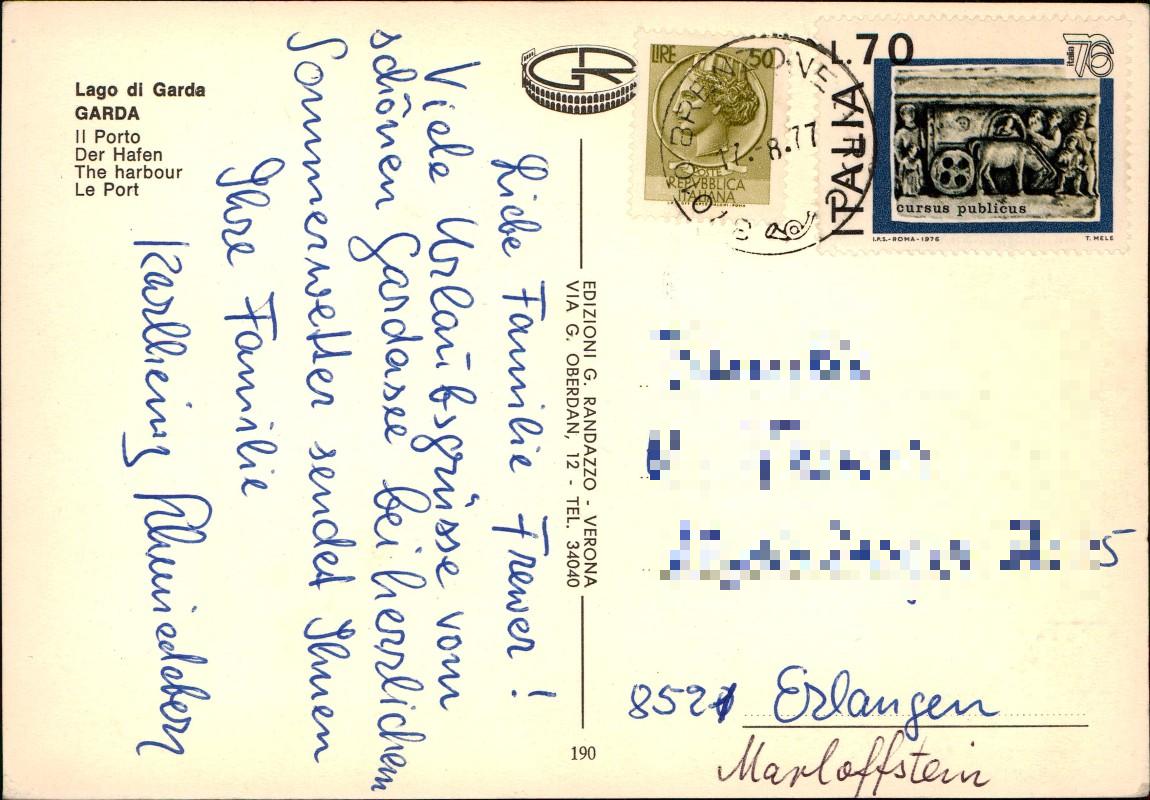 Lago di Garda
GARDA
Il Porto
Der Hafen
The harbour
Le Port
Liebe Familie Frewer!
Viele Urlaubsgrüsse vom
schönen Gardasee bei herrlichem
Sommerwetter sendet Ihnen
Ihre Familie
Karlheinz
EDIZIONI G. RANDAZZO - VERONA
VIA G. OBERDAN, 12 - TEL. 34040
190
LIRE 50
POSTE
REPVBBLICA
ITALIANA
8.77
L.70
italia 76
ITALIA
cursus publicus
I.P.S.-ROMA-1976 T. MELE
5
852 Erlangen
Marloffstein